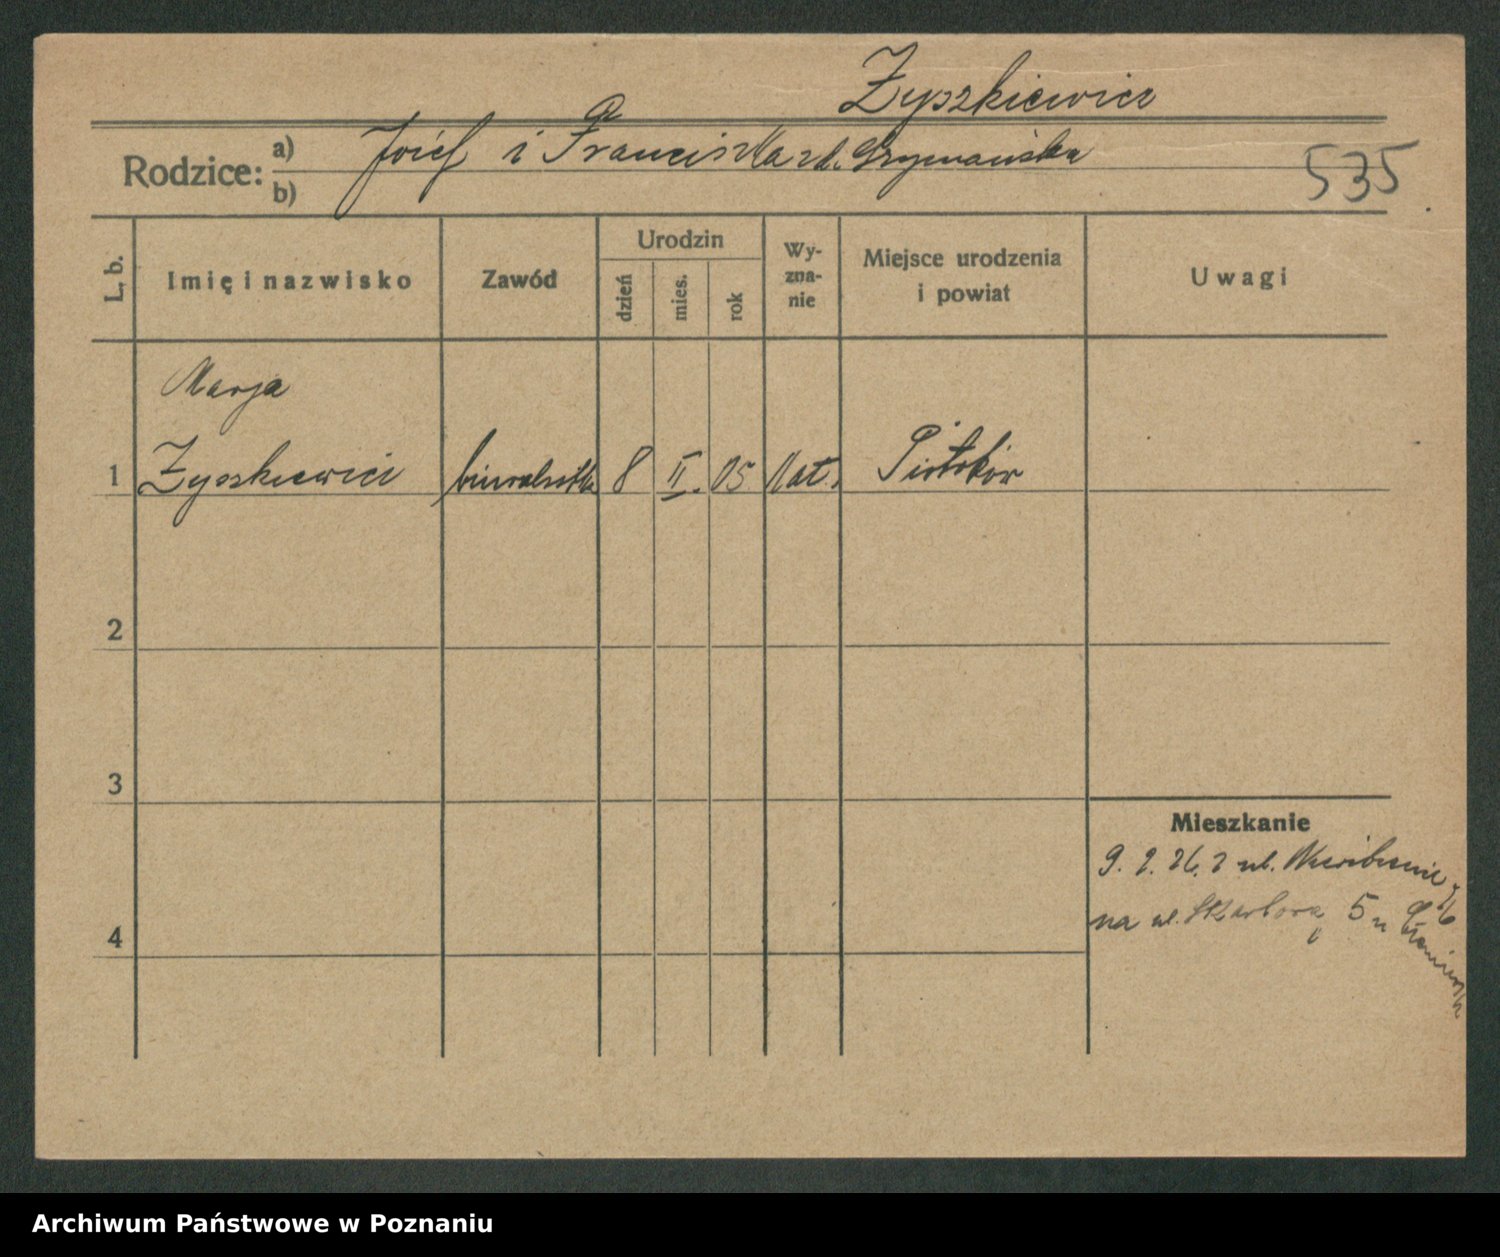 Żyszkiewicz
Rodzice: a) Józef i Franciszka zd. Grymańska
b)
535
L. b.
Imię i nazwisko
Zawód
Urodzin
dzień
mies.
rok
Wy-
zna-
nie
Miejsce urodzenia
i powiat
Uwagi
Marja
1 Żyszkiewicz biuralistka 8 II. 05 kat. Piotrków
2
3
Mieszkanie
9. 2. 26. z ul.
na ul. Skarbową 5 u
4
Archiwum Państwowe w Poznaniu